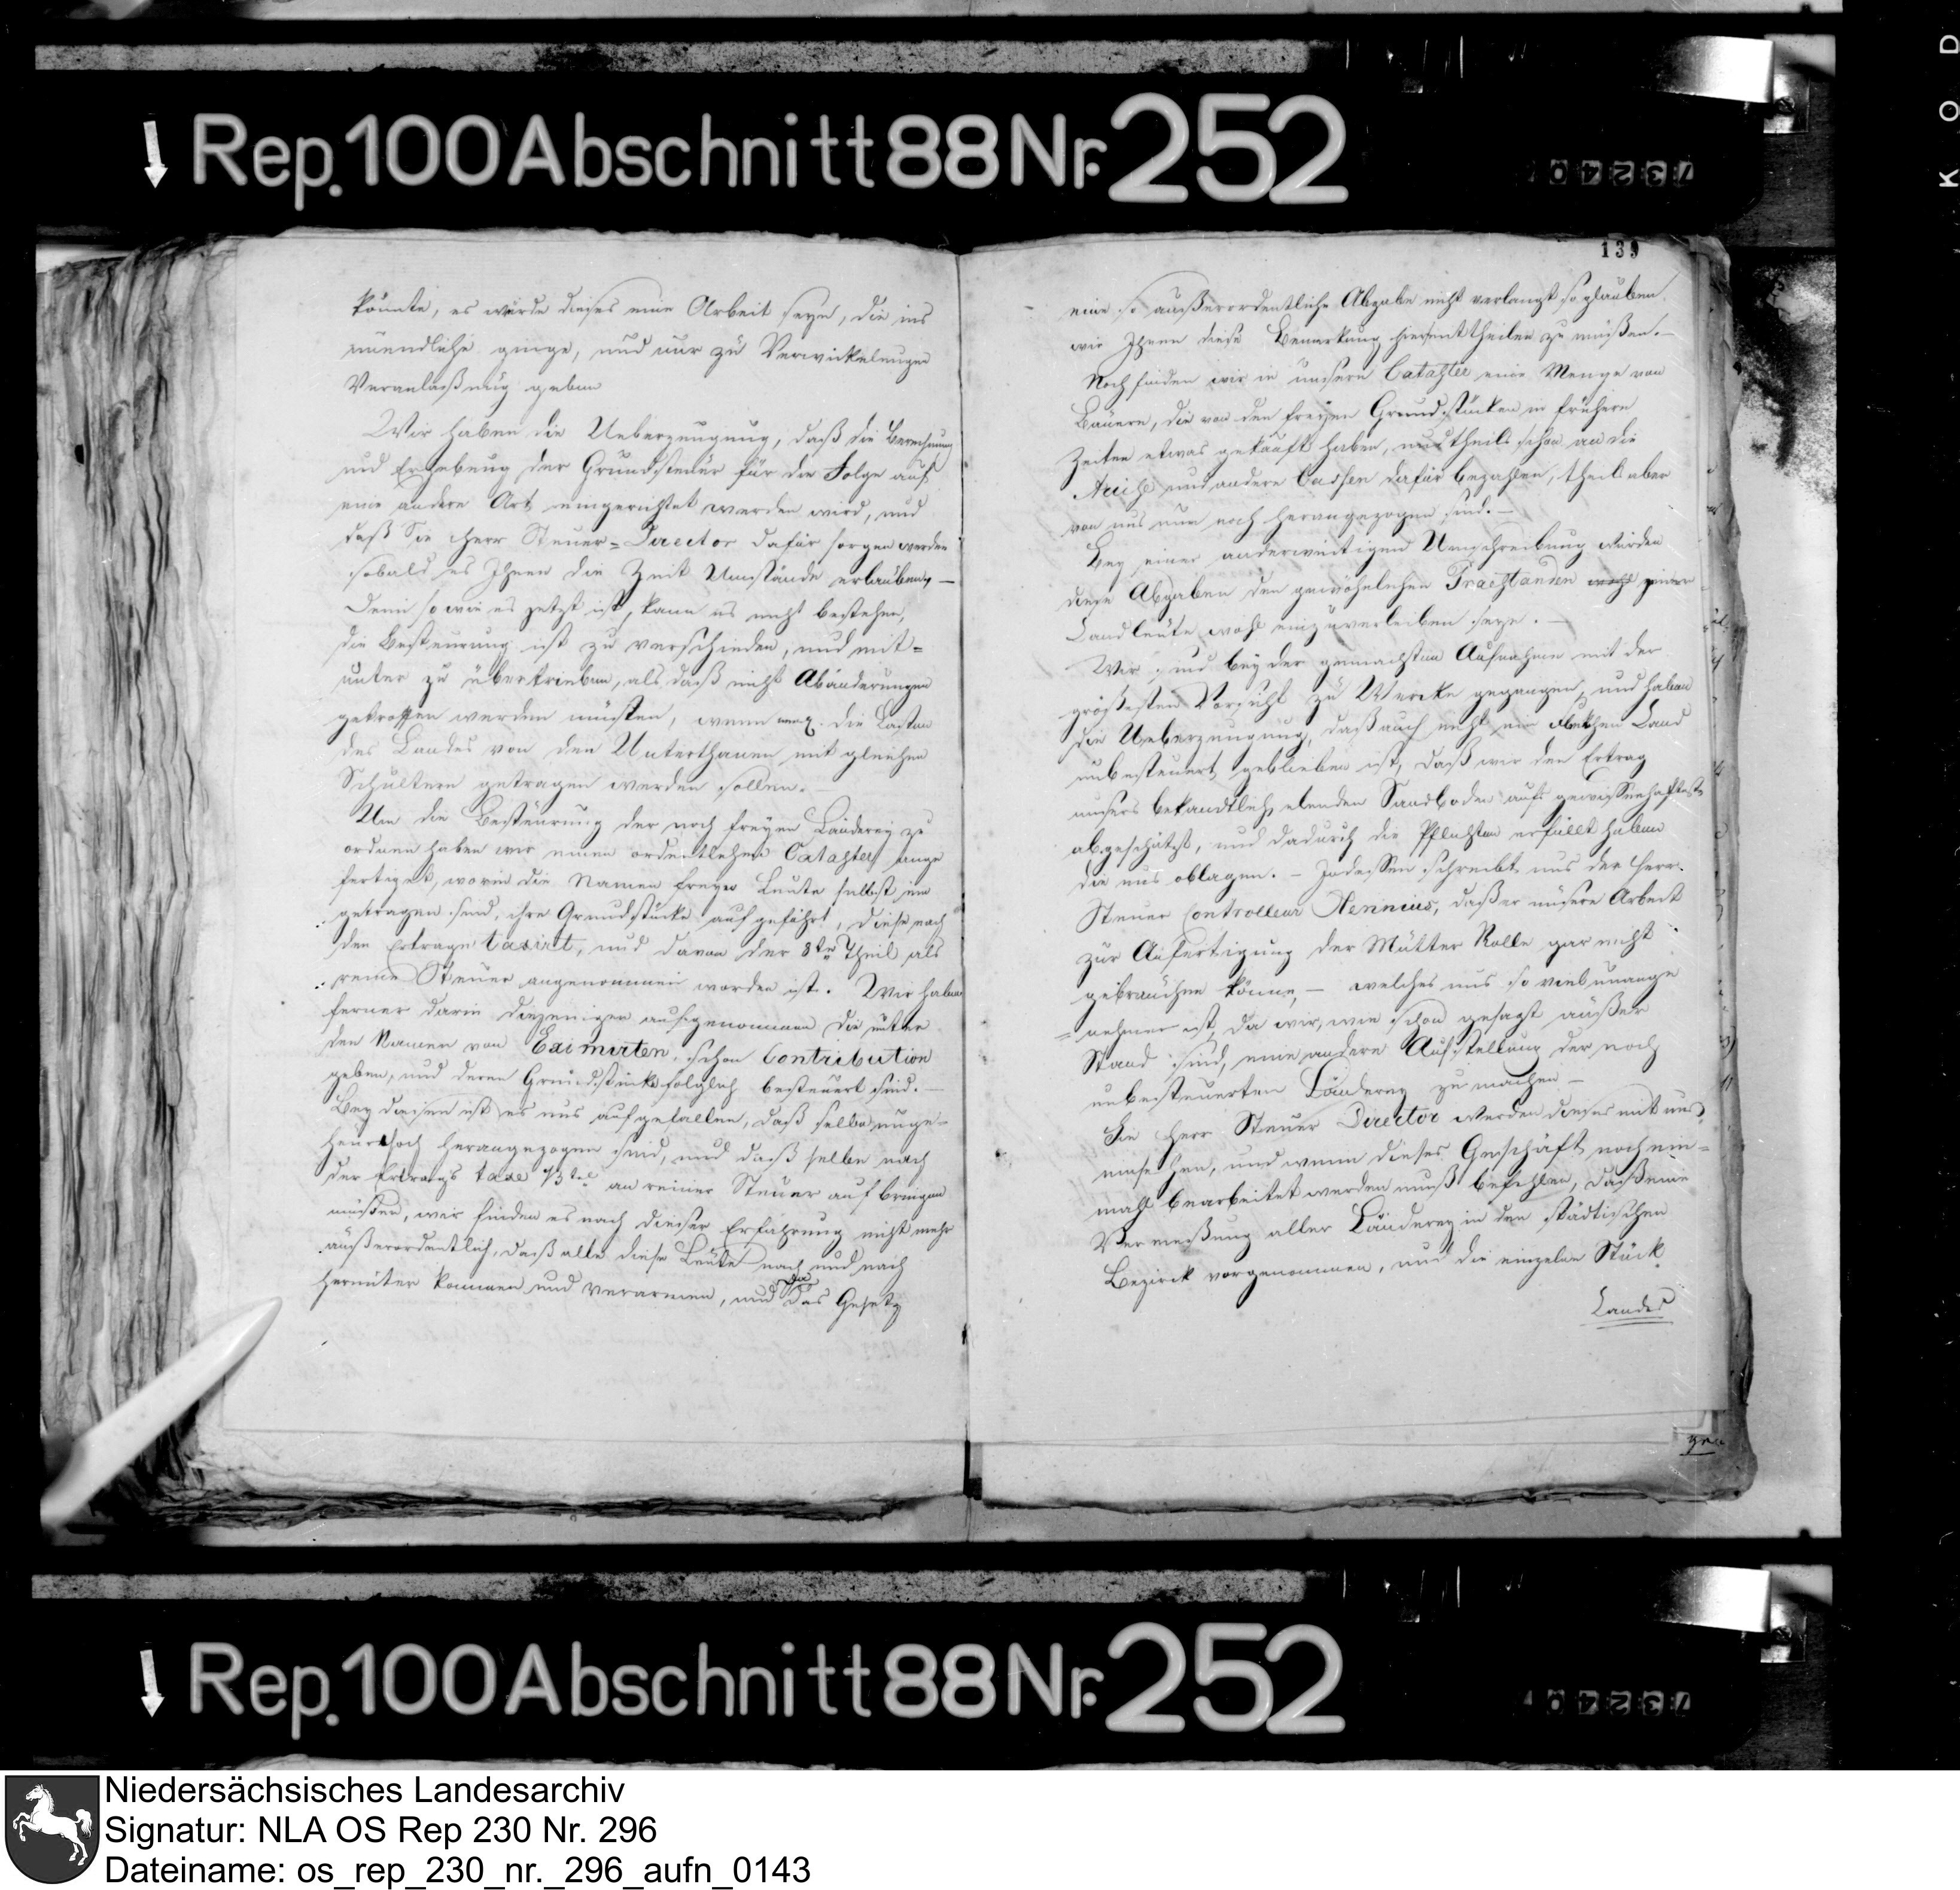 Rep. 100 Abschnitt 88 Nr. 252
73240
KOD
könnte, es würde dieses eine Arbeit seyn, die ins
unendliche ginge, und nur zu Verwickelungen
Veranlaßung geben
Wir haben die Ueberzeugung, daß die Berechnung
und Erhebung der Grundsteuer für die Folge auf
eine andere Art eingerichtet werden wird, und
daß Sie Herr Steuer-Director dafür sorgen werden
sobald es Ihnen die Zeit Umstände erlauben, —
Denn so wie es jetzt ist, kann es nicht bestehen,
die Besteurung ist zu verschieden, und mit-
unter zu übertrieben, als daß nicht Abänderungen
getroffen werden müsten, wenn die Lasten
des Landes von den Unterthanen mit gleichen
Schultern getragen werden sollen. —
Um die Besteurung der noch freyen Länderey zu
ordnen haben wir einen ordentlichen Cataster ange
fertiget, worin die Namen freyer Leute selbst ein
getragen sind, ihre Grundstücke aufgeführt, diese nach
den Ertrage taxirt, und davon der 8te Theil als
reine Steuer angenommen worden ist. Wir haben
ferner darin diejenigen aufgenommen die unter
den Namen von Eximirten, schon Contribution
geben, und deren Grundstücke folglich besteuert sind. —
Bey diesen ist es uns aufgefallen, daß selbe unge-
heuer hoch herangezogen sind, und daß selbe nach
der Ertrags taxe 1/3 tel an reiner Steuer aufbringen
müßen, wir finden es nach dieser Erfahrung nicht mehr
außerordentlich, daß alle diese Leute nach und nach
herunter kommen und verarmen, und da das Gesetz
139
eine so außerordentliche Abgabe nicht verlangt so glauben
wir Ihnen diese Bemerkung hier mittheilen zu müßen. —
Noch finden wir in unsern Cataster eine Menge von
Bauern, die von den freyen Grundstücken in frühern
Zeiten etwas gekauft haben, und theils schon an die
und andere Cassen dafür bezahlen, theils aber
von uns nun noch herangezogen sind. —
Bey einer anderweitigen Umschreibung würden
diese Abgaben den gewöhnlichen Praestanden jener
Landleute wohl einzuverleiben seyn. —
Wir sind bey der gemachten Aufnahme mit der
größesten Vorsicht zu Wercke gegangen, und haben
die Ueberzeugung, daß auch nicht ein Land
unbesteuert geblieben ist, daß wir den Ertrag
unsers bekandtlich elenden Sandboden aufs gewissenhafteste
abgeschätzt, und dadurch die Pflichten erfüllt haben
die uns oblagen. — Indessen schreibt uns der Herr
Steuer Controlleur Hennius, daß er unsere Arbeit
zur Anfertigung der Mutter Rolle gar nicht
gebrauchen könne, — welches uns so viel unange
=nehmer ist, da wir, wie schon gesagt außer
Stand sind, eine andere Aufstellung der noch
unbesteuerten Länderey zu machen —
Sie Herr Steuer Director werden dieses mit uns
einsehen, und wenn dieses Geschäft noch ein=
mahl bearbeitet werden muß befehlen, daß eine
Vermeßung aller Länderey in den städtischen
Bezirck vorgenommen, und die einzelne Stück
Landes
Rep. 100 Abschnitt 88 Nr. 252
73240
Niedersächsisches Landesarchiv
Signatur: NLA OS Rep 230 Nr. 296
Dateiname: os_rep_230_nr._296_aufn_0143